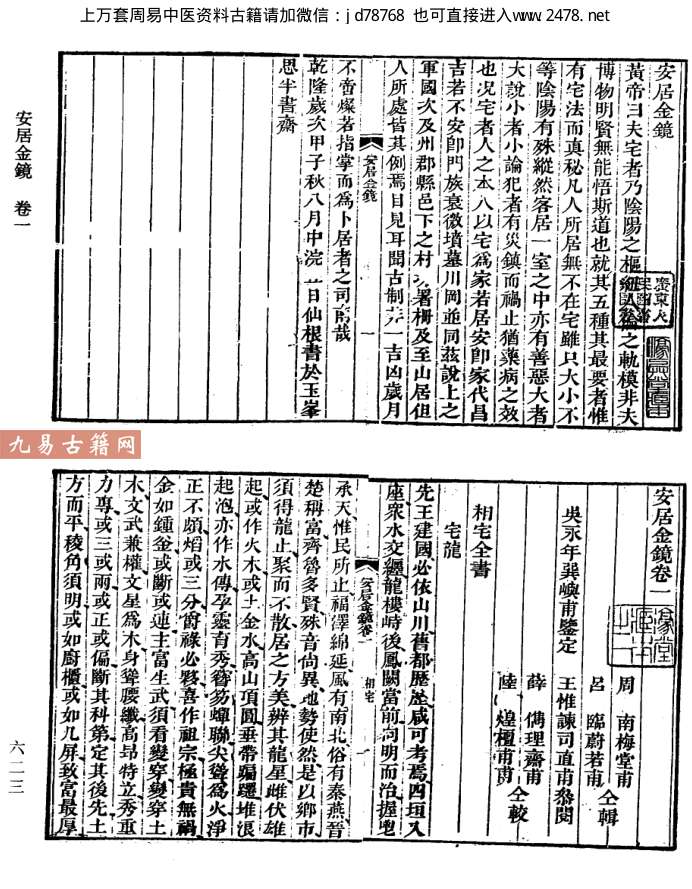 上万套周易中医资料古籍请加微信：jd78768 也可直接进入www.2478.net
安居金鏡 卷一
安居金鏡
黃帝曰夫宅者乃陰陽之樞紐人倫之軌模非夫
博物明賢無能悟斯道也就其五種其最要者惟
有宅法而真秘凡人所居無不在宅雖只大小不
等陰陽有殊縱然客居一室之中亦有善惡大者
大說小者小論犯者有災鎮而禍止猶藥病之效
也況宅者人之本人以宅爲家若居安卽家代昌
吉若不安卽門族衰微墳墓川岡並同茲說上之
軍國次及州郡縣邑下之村署柵及至山居但
人所處皆其例焉目見耳聞古制一吉凶歲月
不啻燦若指掌而爲卜居者之司南哉
乾隆歲次甲子秋八月中浣日仙根書於玉峯
思半書齋
安居金鏡
一
九易古籍网
安居金鏡卷一
吳永年巽嶼甫鑒定
周南梅堂甫
呂臨蔚若甫 仝輯
王惟諫司直甫叅閱
薛儁理齋甫
陸煌檀甫 仝較
相宅全書
宅龍
先王建國必依山川舊都歷歷咸可考焉四垣入
座衆水交纒龍樓峙後鳳闕當前向明而治握
承天惟民所止福澤綿延風有南北俗有秦燕晉
楚稱富齊魯多賢殊音尚異地勢使然是以鄉市
須得龍止聚而不散居之方美辨其龍星雌伏雄
起或作火木或土金水高山頂圓垂帶蹁躚堆浪
起泡亦作水傳孕靈育秀簪笏蟬聯尖聳爲火淨
正不頗焰或三分爵祿必夥喜作祖宗極貴無禍
金如鍾釜或斷或連主富生武須看變穿變穿土
木文武兼權文星爲木身聳腰纖高昂特立秀重
力專或三或兩或正或偏斷其科第定其後先土
方而平稜角須明或如廚櫃或如几屏致富最厚
安居金鏡卷一
相宅
一
六一三